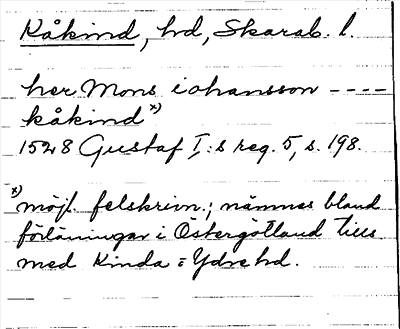 Kåkind, hd, Skarab. l.
her Mons iohansson ----
kåkind x)
1528 Gustaf I:s reg. 5, s. 198.
x) möjl. felskrivn.; nämnes bland
förläningar i Östergötland tills
med Kinda = Ydre hd.